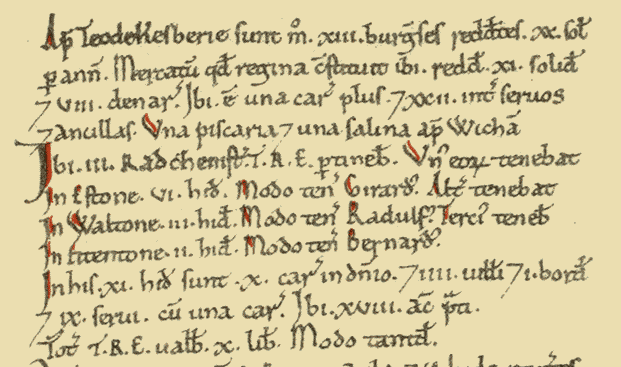 Ap̃ Teodekesberie sunt m̊. xiii. burg̃ses redd̃tes. xx. sol̃
ꝑ ann̄. Mercatū qđ regina c̄stituit ibi. redđ. xi. soliđ
⁊ viii. denar̃. Ibi. ē una car̃ plus. ⁊ xxii. int̃ seruos
⁊ ancillas. Vna piscaria ⁊ una salina ap̃ Wichā
Ibi. iii. Radchenist̃. T. R. E. ꝑtineƀ. Vn᷒ eoꝝ tenebat
In Estone. vi. hiđ. Modo ten̄ Girard᷒. Alt̃ tenebat
In Waltone. iii. hiđ. Modo ten̄ Radulf᷒. Terci᷒ teneƀ
In Fitentone. ii. hiđ. Modo ten̄ Bernard᷒.
In his. xi. hiđ sunt. x. car̃ in dn̄io. ⁊ iiii. uilli ⁊ i. borđ
⁊ ix. serui. cū una car̃. Ibi. xviii. ac̃ p̃ti.
Tot̃ T. R. E. ualƀ. x. liƀ. Modo tantđ.